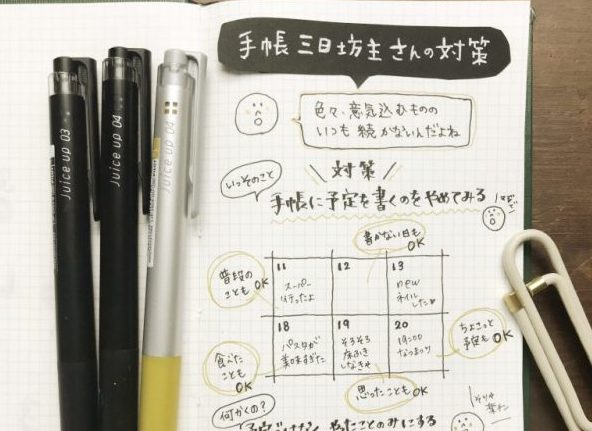 Juice up 03
Juice up 04
Juice up 04
手帳三日坊主さんの対策
色々、意気込むものの
いつも続かないんだよね
いっそのこと
対策
手帳に予定を書くのをやめてみる
書かない日も
OK
普段の
ことも OK
11
スーパー
行ったよ
12
13
new
ネイル
した
18
パスタが
美味すぎた
19
そろそろ
床ふき
しなきゃ
20
19:00
なつまつり
ちょこっと
予定も OK
食べた
ことも
OK
思ったこともOK
何かくの？
やったことのみにする